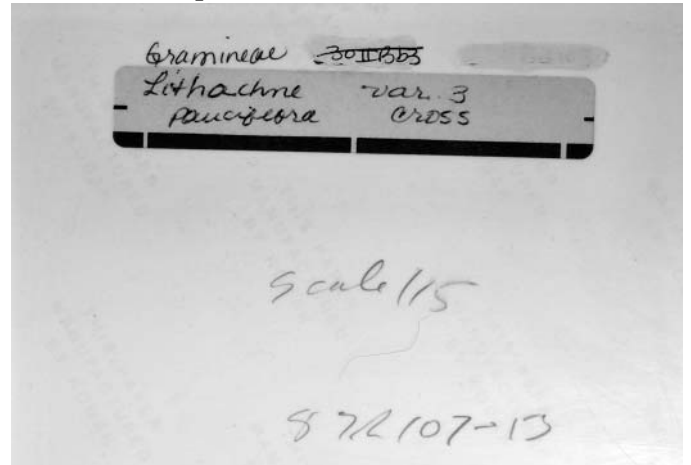 Gramineae 30IIBb3
Lithachne var. 3
pauciflora Cross
Scale 115
87R107-13